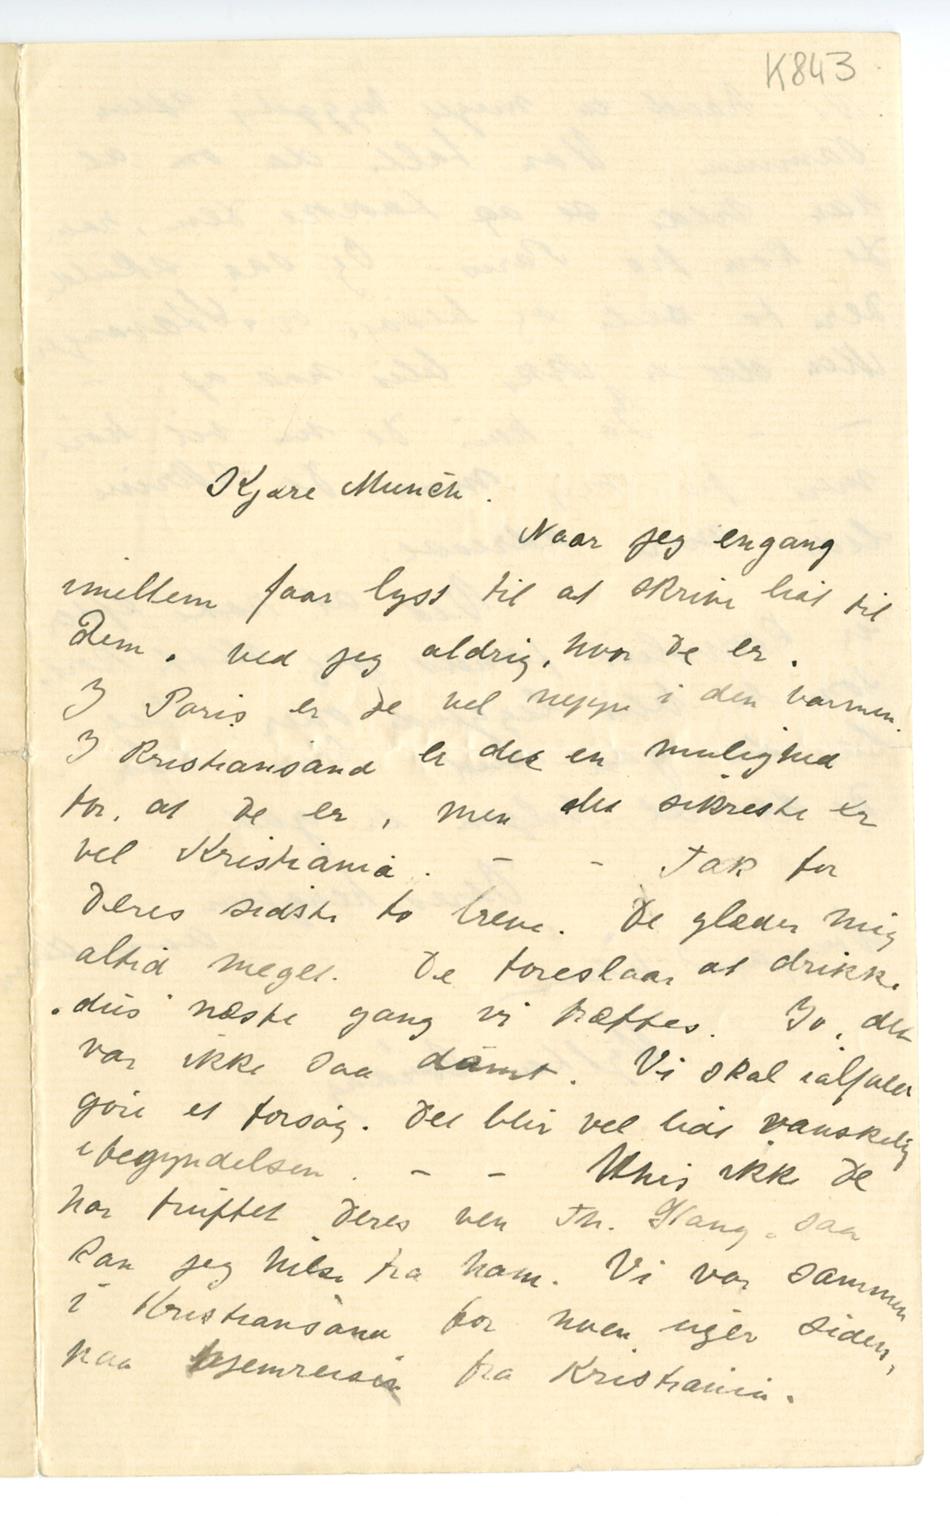 K843
Kjære Munch.
Naar jeg engang
imellem faar lyst til at skrive lidt til
Dem, ved jeg aldrig, hvor De er.
I Paris er De vel neppe i den varmen.
I Kristiansand er der en mulighed
for, at De er, men det sikreste er
vel Kristiania. – – Tak for
Deres sidste to breve. De glæder mig
altid meget. De foreslaar at drikke
"dus" næste gang vi træffes. Jo, det
var ikke saa dumt. Vi skal ialfald
gøre et forsøg. Det blir vel lidt vanskelig
i begyndelsen. – – Hvis ikke De
har truffet Deres ven Th. saa
kan jeg hilse fra ham. Vi var sammen
i Kristiansand for noen uger siden,
paa hjemreisen fra Kristiania.